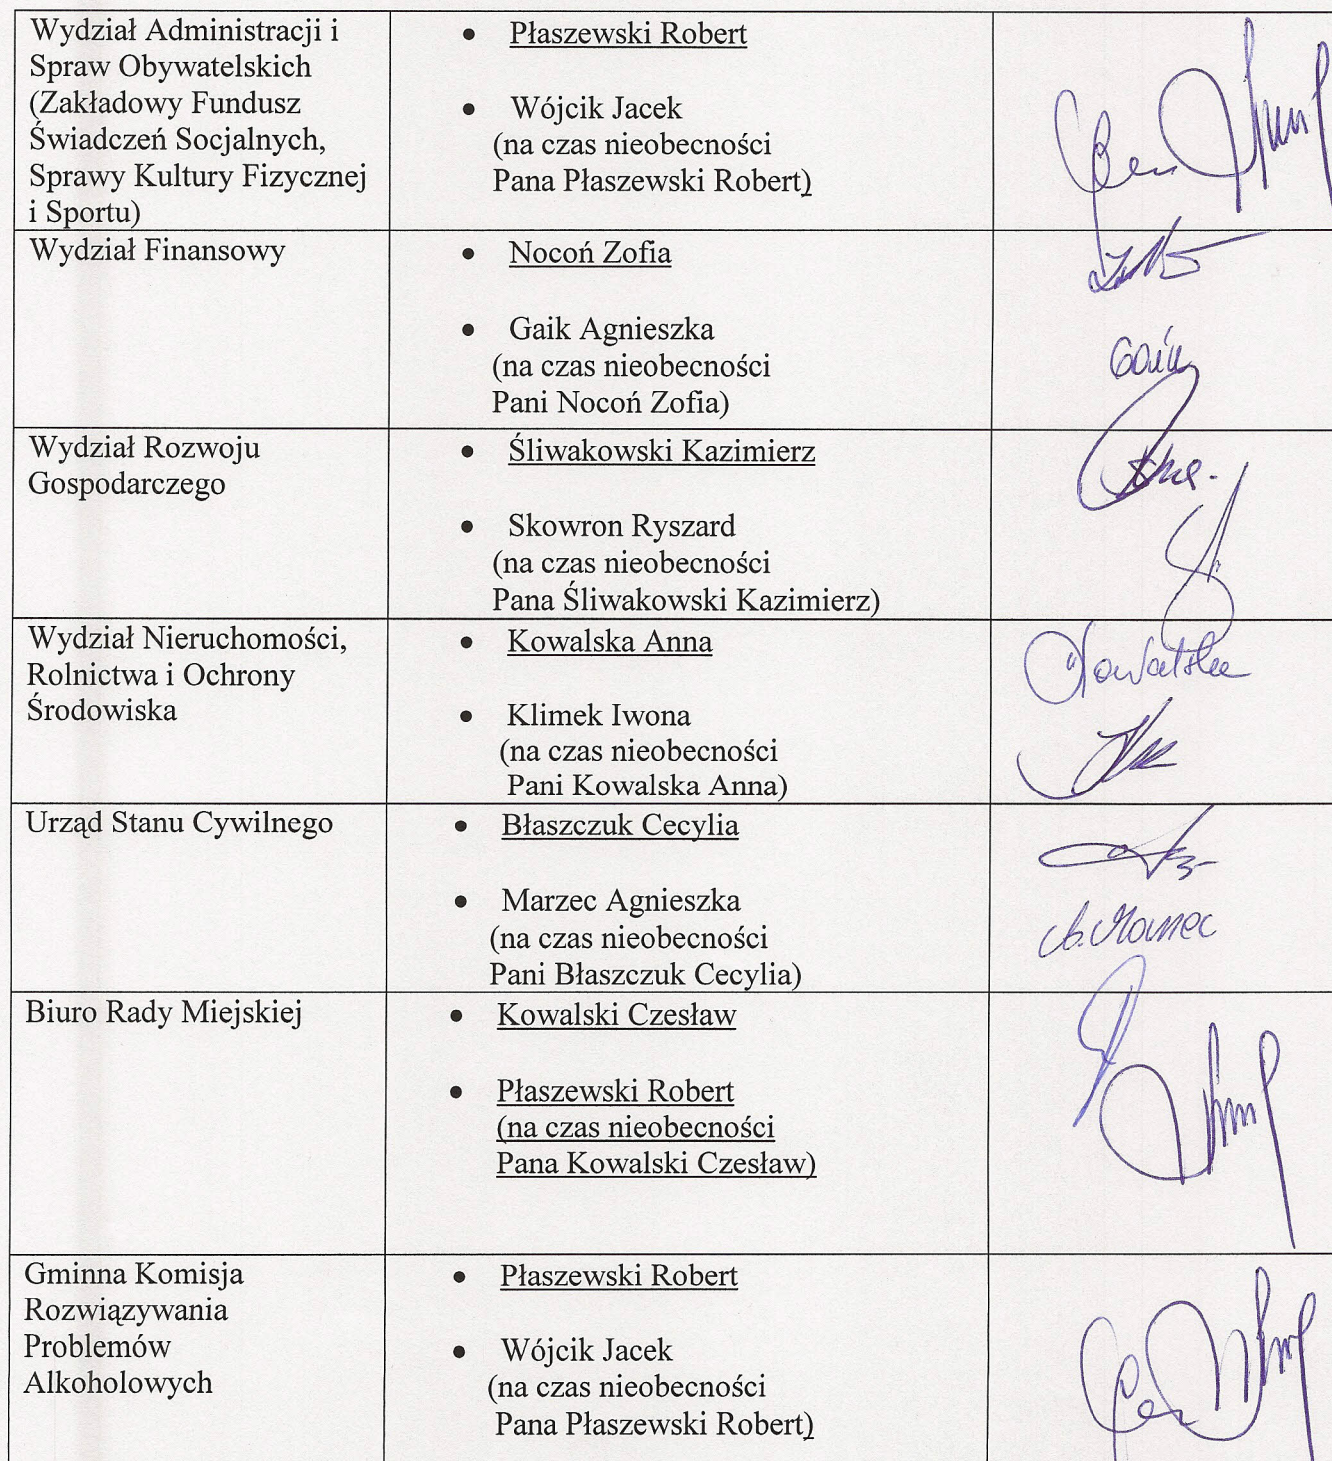 Wydział Administracji i
Spraw Obywatelskich
(Zakładowy Fundusz
Świadczeń Socjalnych,
Sprawy Kultury Fizycznej
i Sportu)
• Płaszewski Robert
• Wójcik Jacek
(na czas nieobecności
Pana Płaszewski Robert)
Wydział Finansowy
• Nocoń Zofia
• Gaik Agnieszka
(na czas nieobecności
Pani Nocoń Zofia)
Gaik
Wydział Rozwoju
Gospodarczego
• Śliwakowski Kazimierz
• Skowron Ryszard
(na czas nieobecności
Pana Śliwakowski Kazimierz)
Wydział Nieruchomości,
Rolnictwa i Ochrony
Środowiska
• Kowalska Anna
• Klimek Iwona
(na czas nieobecności
Pani Kowalska Anna)
Kowalska
Urząd Stanu Cywilnego
• Błaszczuk Cecylia
• Marzec Agnieszka
(na czas nieobecności
Pani Błaszczuk Cecylia)
A. Marzec
Biuro Rady Miejskiej
• Kowalski Czesław
• Płaszewski Robert
(na czas nieobecności
Pana Kowalski Czesław)
Gminna Komisja
Rozwiązywania
Problemów
Alkoholowych
• Płaszewski Robert
• Wójcik Jacek
(na czas nieobecności
Pana Płaszewski Robert)